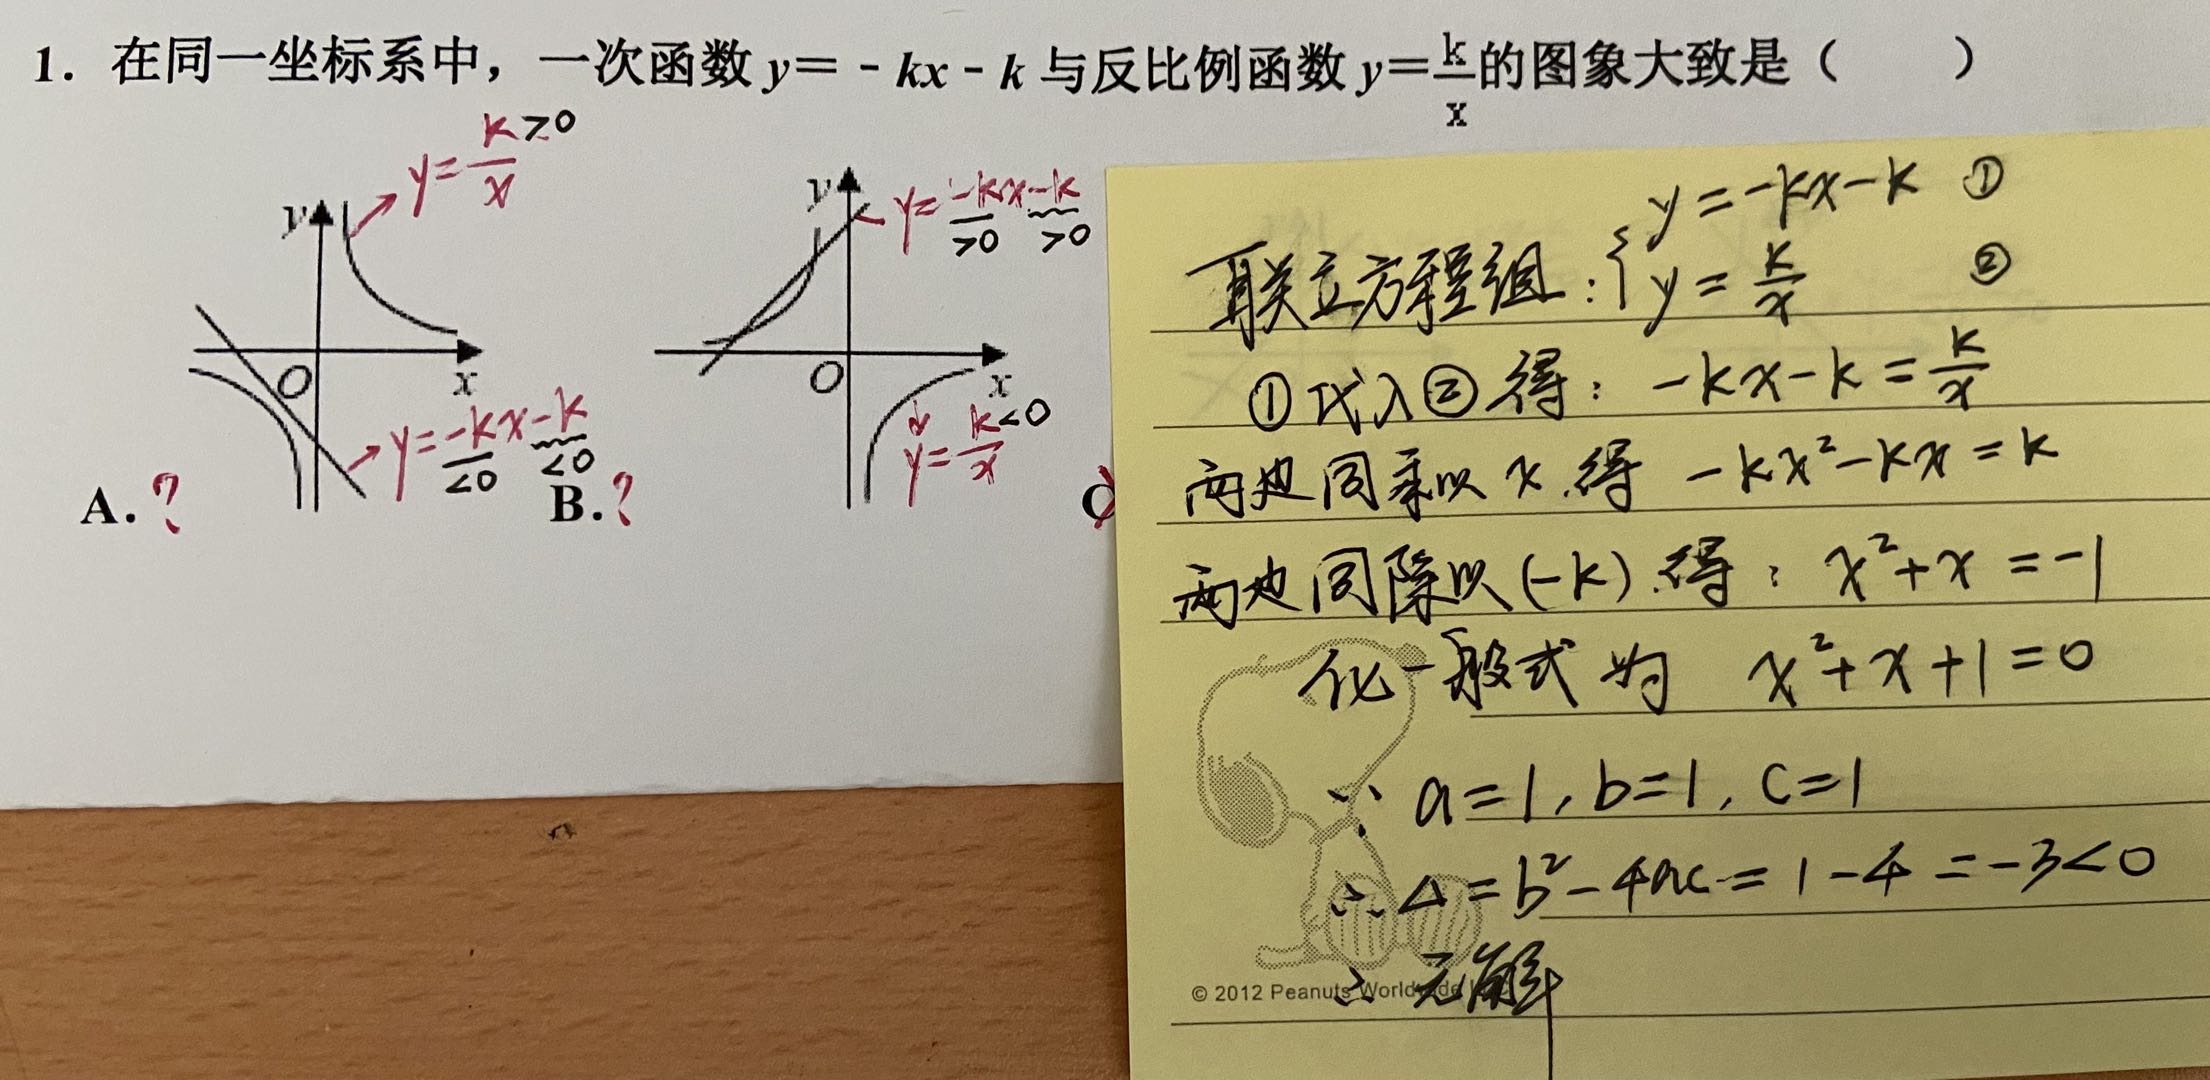 1. 在同一坐标系中，一次函数 y= - kx - k 与反比例函数 y=k/x 的图象大致是（ ）
y=k/x >0
y
O
x
y=-kx-k
<0 <0
A. ?
y
y=-kx-k
>0 >0
O
x
y=k/x <0
B. ?
C
联立方程组: { y=-kx-k ①
y=k/x ②
①代入②得: -kx-k=k/x
两边同乘以x.得 -kx²-kx=k
两边同除以(-k).得: x²+x=-1
化一般式为 x²+x+1=0
∵ a=1, b=1, c=1
∴ Δ=b²-4ac=1-4=-3<0
∴ 无解
© 2012 Peanuts Worldwide